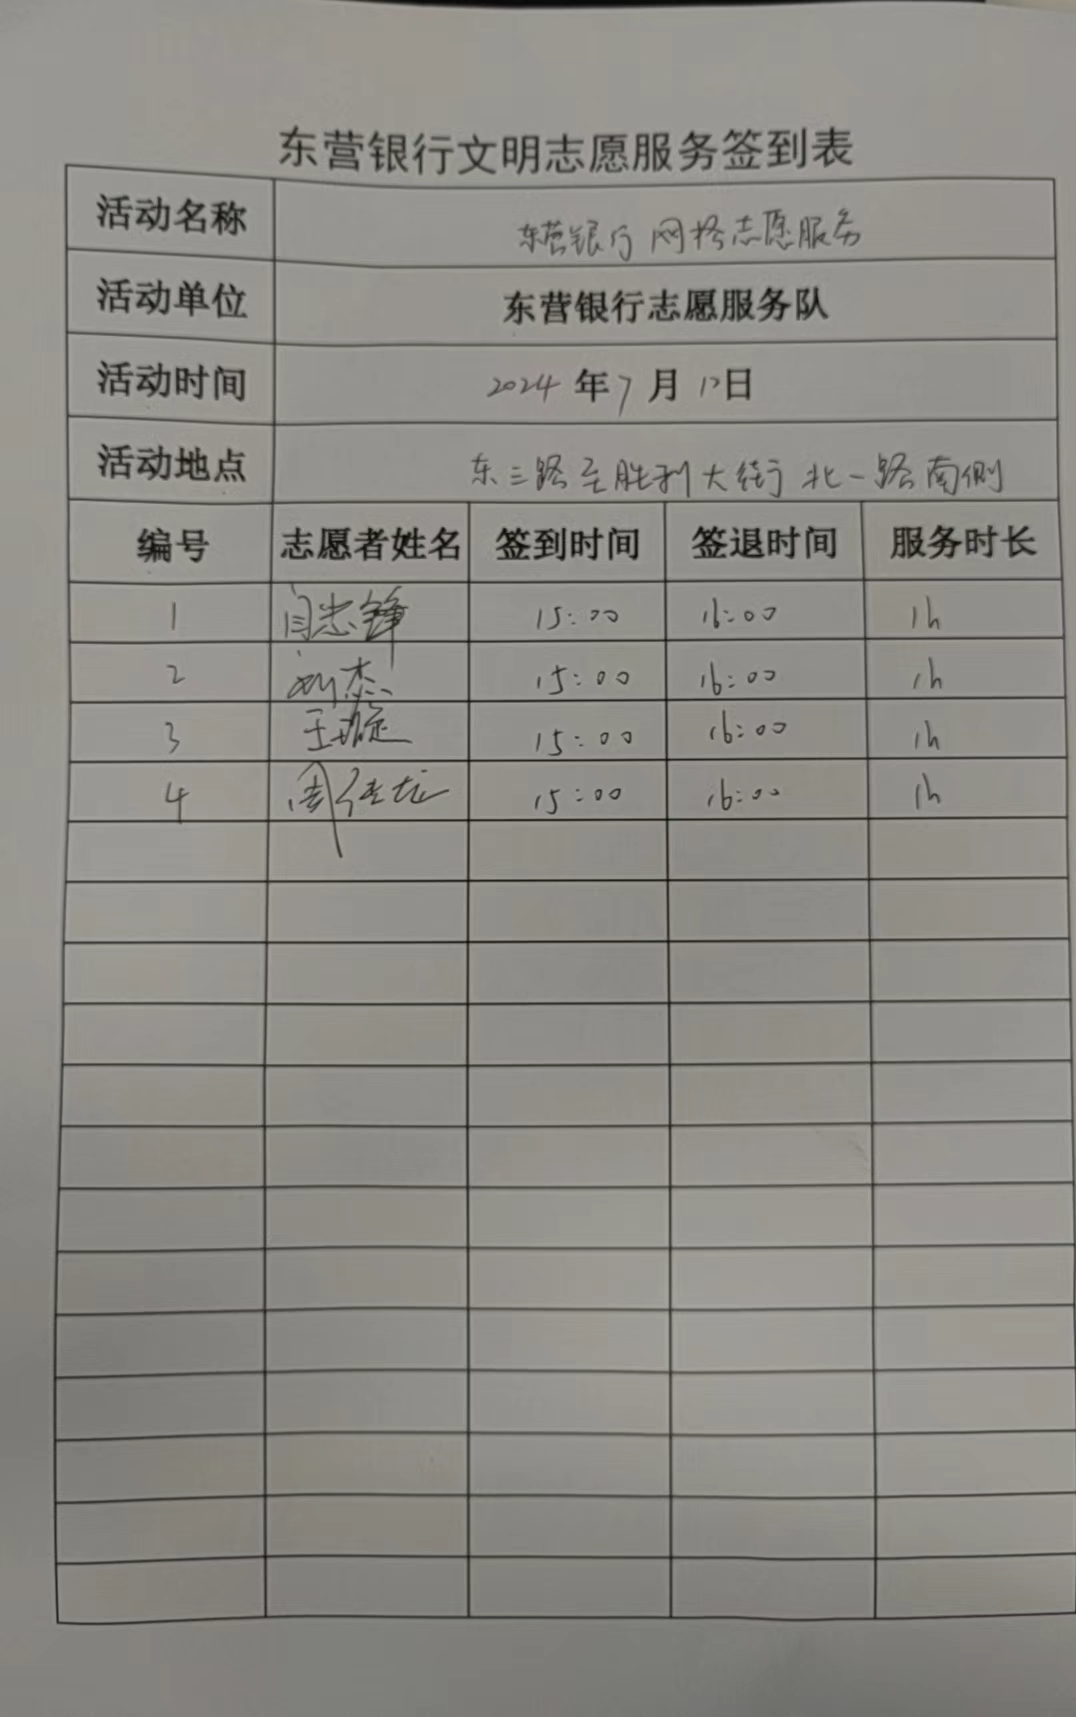 东营银行文明志愿服务签到表
活动名称 东营银行网格志愿服务
活动单位 东营银行志愿服务队
活动时间 2024年7月12日
活动地点 东三路至胜利大街北一路南侧
编号 志愿者姓名 签到时间 签退时间 服务时长
1 闫志锋 15:00 16:00 1h
2 刘杰 15:00 16:00 1h
3 王璇 15:00 16:00 1h
4 周 15:00 16:00 1h